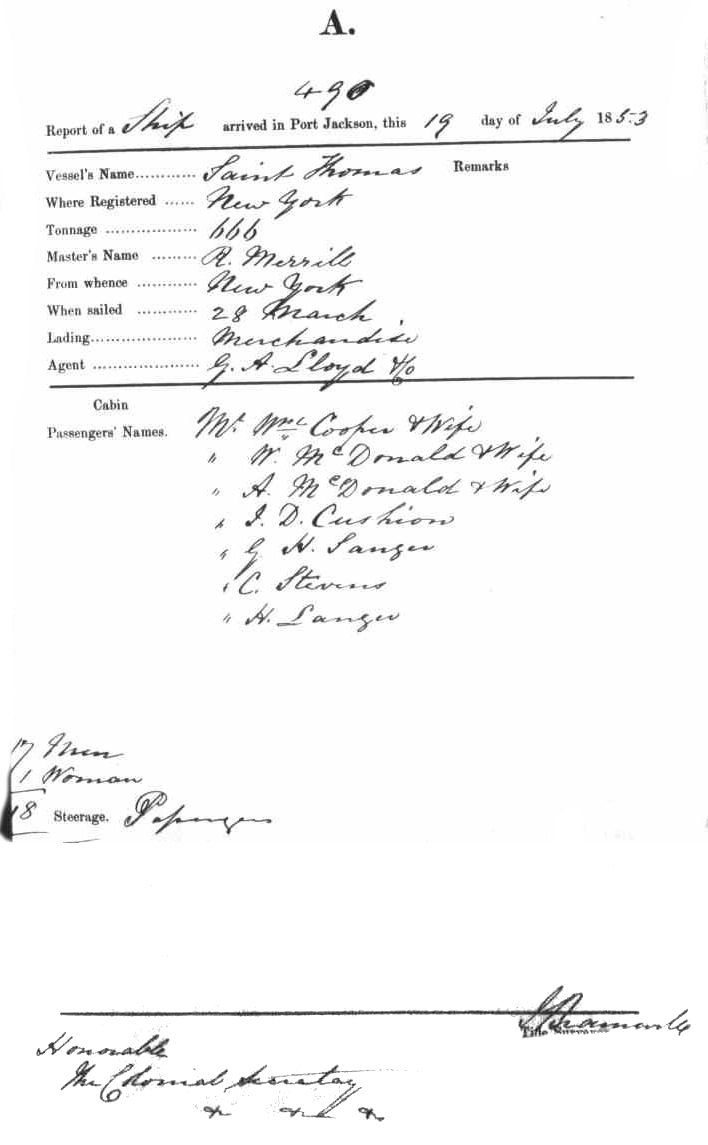 A.
490
Report of a Ship arrived in Port Jackson, this 19 day of July 1853
Vessel's Name............ Saint Thomas Remarks
Where Registered ...... New York
Tonnage .................. 666
Master's Name ......... R. Merrill
From whence ............ New York
When sailed ............ 28 March
Lading..................... Merchandise
Agent ..................... G. A. Lloyd & Co
Cabin
Passengers' Names. Mr. Wm. Cooper & Wife
" W. McDonald & Wife
" A. McDonald & Wife
" I. D. Cushion
" G H. Sanger
" C. Stevens
" H. Langer
17 Men
1 Woman
18 Steerage. Passengers
Honorable
The Colonial Secretary
&c &c &c